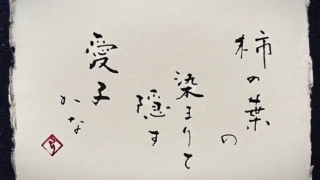 柿の葉
の
染まりて
隠す
愛子
かな